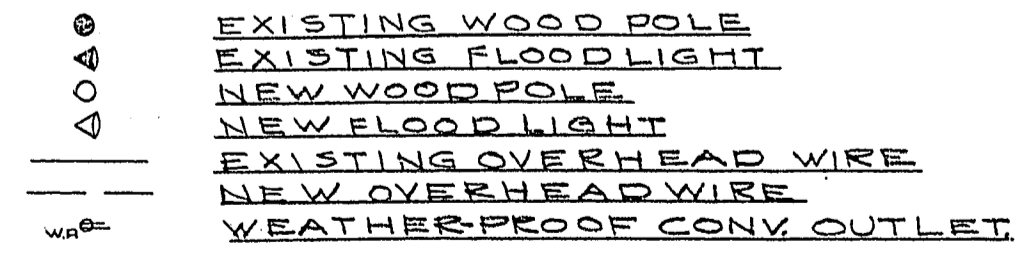 EXISTING WOOD POLE
EXISTING FLOOD LIGHT
NEW WOOD POLE
NEW FLOOD LIGHT
EXISTING OVERHEAD WIRE
NEW OVERHEAD WIRE
W.P. WEATHER-PROOF CONV. OUTLET.